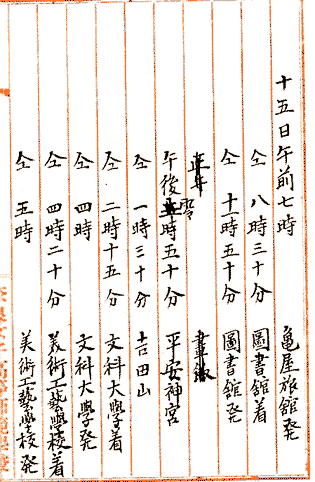 十五日午前七時 亀屋旅館発
仝 八時三十分 圖書館着
仝 十一時五十分 圖書館発
正午 晝飯
午後零時五十分 平安神宮
仝 一時三十分 吉田山
仝 二時十五分 文科大學着
仝 四時 文科大學発
仝 四時二十分 美術工藝學校着
仝 五時 美術工藝學校発